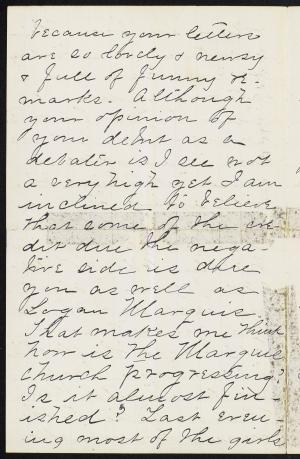 because your letters
are so lovely & newsy
& full of funny re-
marks. Although
your opinion of
your debut as a
debater is I see not
a very high yet I am
inclined to believe
that some of the cre-
dit due the nega
tive side is due
you as well as
Logan Marquis.
That makes me think
how is the Marquis
church progressing?
Is it almost fin-
ished? Last even-
ing most of the girls